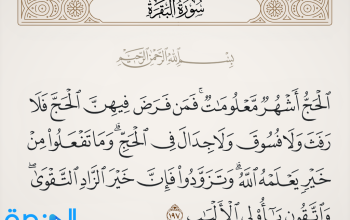 سُورَةُ البَقَرَةِ
بِسْمِ اللَّهِ الرَّحْمَٰنِ الرَّحِيمِ
ٱلْحَجُّ أَشْهُرٌ مَّعْلُومَٰتٌ ۚ فَمَن فَرَضَ فِيهِنَّ ٱلْحَجَّ فَلَا
رَفَثَ وَلَا فُسُوقَ وَلَا جِدَالَ فِي ٱلْحَجِّ ۗ وَمَا تَفْعَلُوا۟ مِنْ
خَيْرٍ يَعْلَمْهُ ٱللَّهُ ۗ وَتَزَوَّدُوا۟ فَإِنَّ خَيْرَ ٱلزَّادِ ٱلتَّقْوَىٰ ۖ
وَٱتَّقُونِ يَٰٓأُو۟لِي ٱلْأَلْبَٰبِ ١٩٧